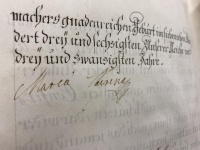 machers gnadenreichen Geburt im siebenzehen
dert dreÿ und sechsigsten, Unserer Reiche
dreÿ und zwanzigsten Jahre.
Maria